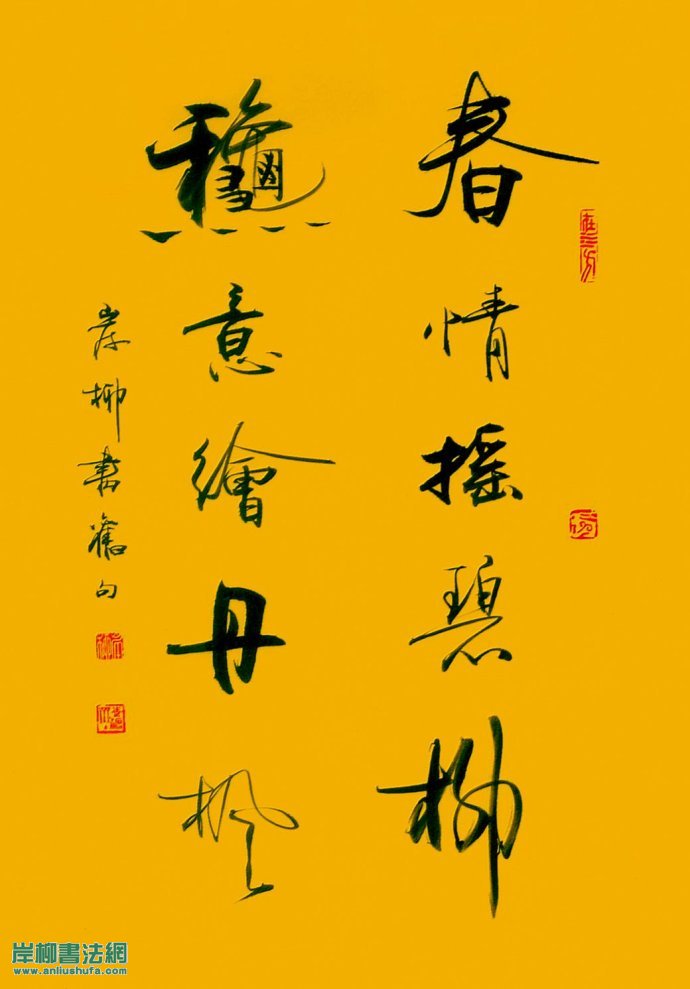 春情摇碧柳
龝意繪丹楓
岸柳書舊句
岸柳書法網
www.anliushufa.com